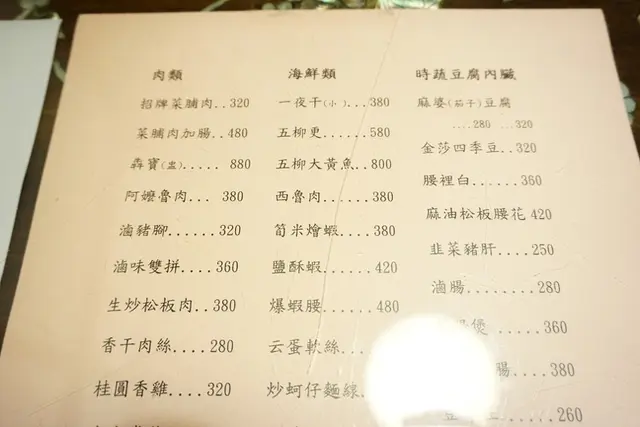 肉類
招牌菜脯肉..320
菜脯肉加腸..480
犇寶(盅)..... 880
阿嬤魯肉... 380
滷豬腳......320
滷味雙拼....360
生炒松板肉..380
香干肉絲....280
桂圓香雞....320
海鮮類
一夜干(小)...380
五柳更......580
五柳大黃魚..800
西魯肉......380
筍米燴蝦....380
鹽酥蝦......420
爆蝦腰......480
云蛋軟絲...
炒蚵仔麵線.
時蔬豆腐內臟
麻婆(茄子)豆腐
....280 ...320
金莎四季豆..320
腰裡白......360
麻油松板腰花 420
韭菜豬肝....250
滷腸........280
煲 .....360
腸....380
...260